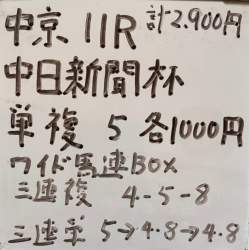 中京 11R 計2.900円
中日新聞杯
単複 5 各1000円
ワイド馬連BOX
三連複 4-5-8
三連単 5→4.8→4.8